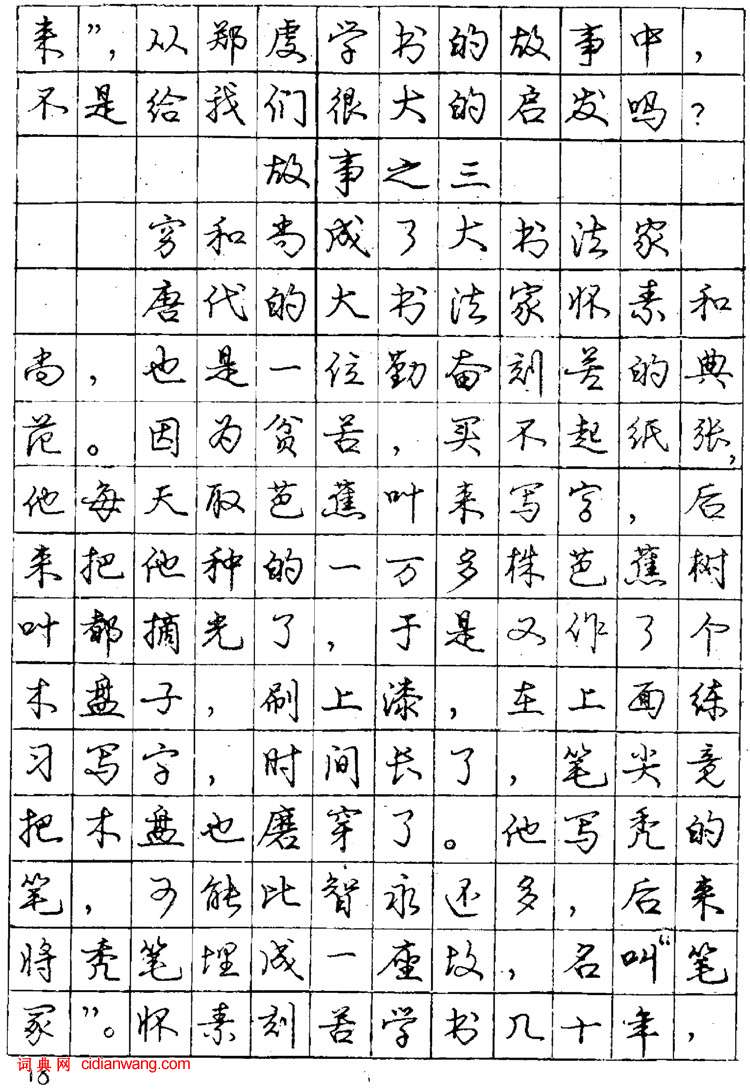 来”，从郑虔学书的故事中，
不是给我们很大的启发吗？
故事之三
穷和尚成了大书法家
唐代的大书法家怀素和
尚，也是一位勤奋刻苦的典
范。因为贫苦，买不起纸张，
他每天取芭蕉叶来写字，后
来把他种的一万多株芭蕉树
叶都摘光了，于是又作了个
木盘子，刷上漆，在上面练
习写字，时间长了，笔尖竟
把木盘也磨穿了。他写秃的
笔，可能比智永还多，后来
将秃笔埋成一座坟，名叫“笔
冢”。怀素刻苦学书几十年，
词典网 cidianwang.com
18